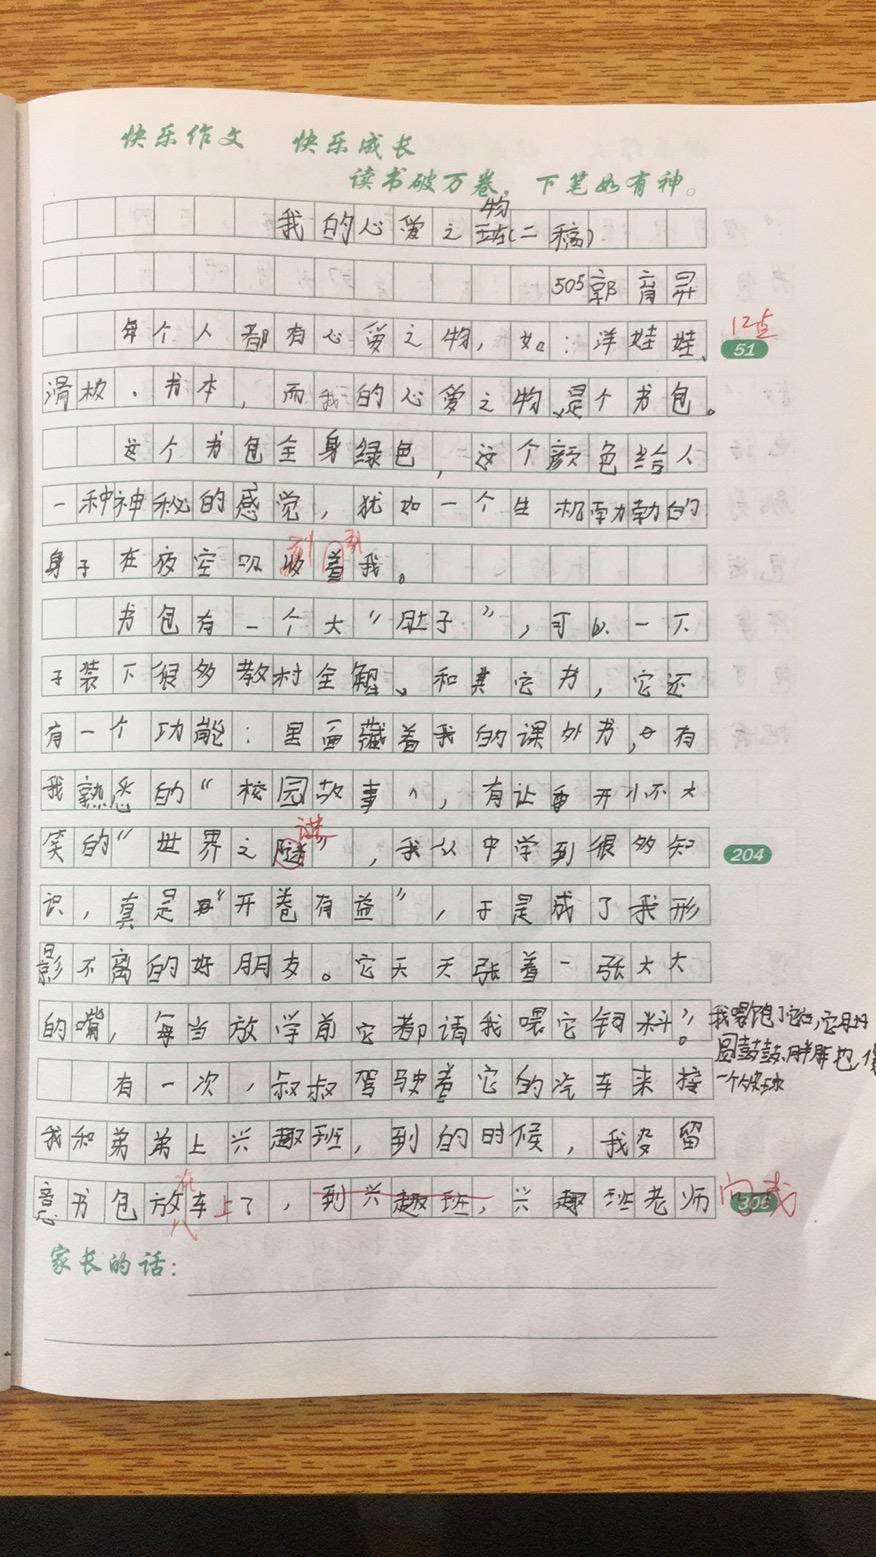 快乐作文 快乐成长
读书破万卷，下笔如有神。
我的心爱之物(二稿)
505郭育昇
每个人都有心爱之物，如：洋娃娃、
12点
51
滑板、书本，而我的心爱之物、是个书包。
这个书包全身绿包，这个颜色给人
一种神秘的感觉，犹如一个生机勃勃的
身子在夜空吸收着我。
到
书包有一个大“肚子”，可以一下
子装下很多教材全解、和其它书，它还
有一个功能：里面藏着我的课外书，有
我熟悉的“校园故事”，有让香开小不大
笑的“世界之隧”，我从中学到很多知
谜
204
识，真是“开卷有益”，于是成了我形
影不离的好朋友。它天天张着一张大大
的嘴，每当放学前它都请我喂它饲料”。
我喂饱了它后，它
圆鼓鼓、胖胖
一个皮球
有一次，叔叔驾驶着它的汽车来接
我和弟弟上兴趣班，到的时候，我没留
意书包放车上了，到兴趣班，兴趣班老师
在
向我
306
家长的话：